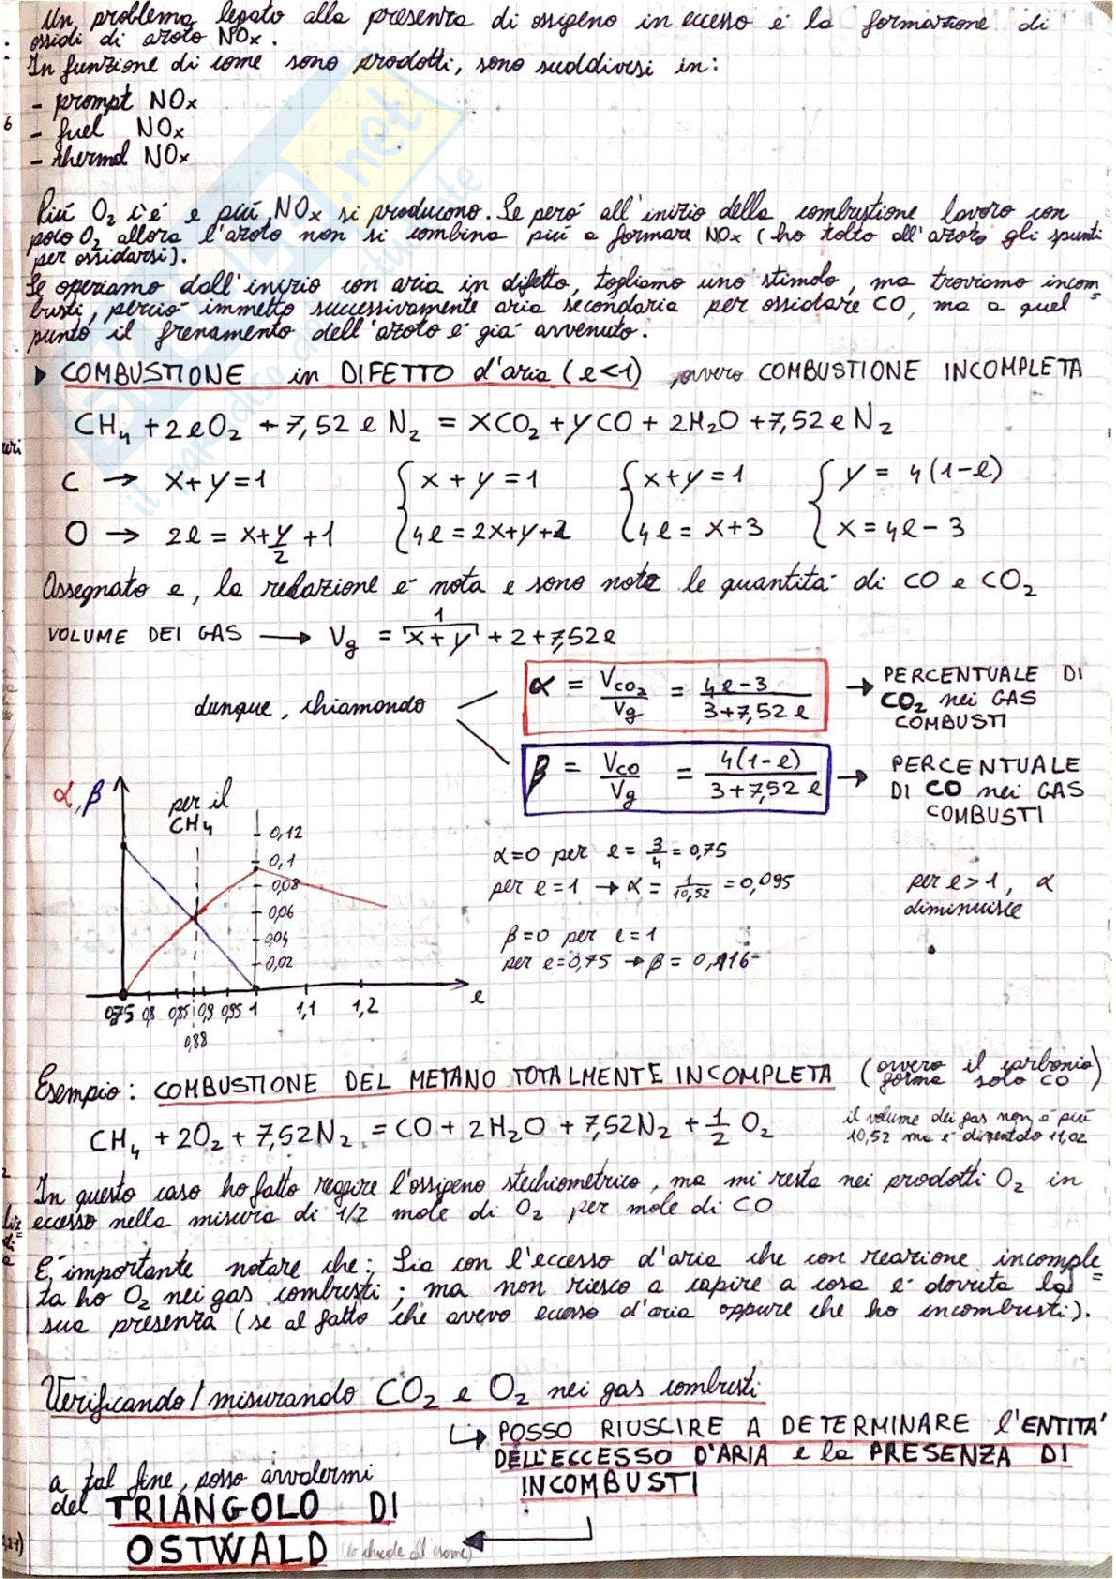 Un problema legato alla presenza di ossigeno in eccesso è la formazione di
ossidi di azoto NOx.
In funzione di come sono prodotti, sono suddivisi in:
- prompt NOx
- fuel NOx
- thermal NOx
Più O2 c'è e più NOx si producono. Se però all'inizio della combustione lavoro con
poco O2 allora l'azoto non si combina più a formare NOx (ho tolto all'azoto gli spunti
per ossidarsi).
Se operiamo dall'inizio con aria in difetto, togliamo uno stimolo, ma troviamo incom=
busti, perciò immetto successivamente aria secondaria per ossidare CO, ma a quel
punto il frenamento dell'azoto è già avvenuto.
COMBUSTIONE in DIFETTO d'aria (e<1) ovvero COMBUSTIONE INCOMPLETA
CH4 + 2eO2 + 7,52 e N2 = XCO2 + yCO + 2H2O + 7,52 e N2
C → x+y=1 { x+y=1 { x+y=1 { y = 4(1-e)
O → 2e = x+y/2+1 { 4e = 2x+y+2 { 4e = x+3 { x=4e-3
Assegnato e, la reazione è nota e sono note le quantità di CO e CO2
VOLUME DEI GAS → Vg = x+y + 2 + 7,52e
1
dunque, chiamando
α = VCO2/Vg = 4e-3/3+7,52 e → PERCENTUALE DI
CO2 nei GAS
COMBUSTI
β = VCO/Vg = 4(1-e)/3+7,52 e → PERCENTUALE
DI CO nei GAS
COMBUSTI
α, β
per il
CH4
0,12
0,1
0,08
0,06
0,04
0,02
e
0,75 0,8 0,85 0,9 0,95 1 1,1 1,2
0,88
α=0 per e = 3/4 = 0,75
per e=1 → α = 1/10,52 = 0,095
β=0 per e=1
per e=0,75 → β = 0,116
per e>1, α
diminuisce
Esempio: COMBUSTIONE DEL METANO TOTALMENTE INCOMPLETA (ovvero il carbonio
forma solo CO)
CH4 + 2O2 + 7,52N2 = CO + 2H2O + 7,52N2 + 1/2 O2
il volume dei gas non è più
10,52 ma è diventato 11,02
In questo caso ho fatto reagire l'ossigeno stechiometrico, ma mi resta nei prodotti O2 in
eccesso nella misura di 1/2 mole di O2 per mole di CO
È importante notare che: Sia con l'eccesso d'aria che con reazione incomple=
ta ho O2 nei gas combusti; ma non riesco a capire a cosa è dovuta la
sua presenza (se al fatto che avevo eccesso d'aria oppure che ho incombusti).
Verificando/misurando CO2 e O2 nei gas combusti
POSSO RIUSCIRE A DETERMINARE l'ENTITA'
DELL'ECCESSO D'ARIA e la PRESENZA DI
INCOMBUSTI
a tal fine, posso avvalermi
del TRIANGOLO DI
OSTWALD (lo chiede col nome)